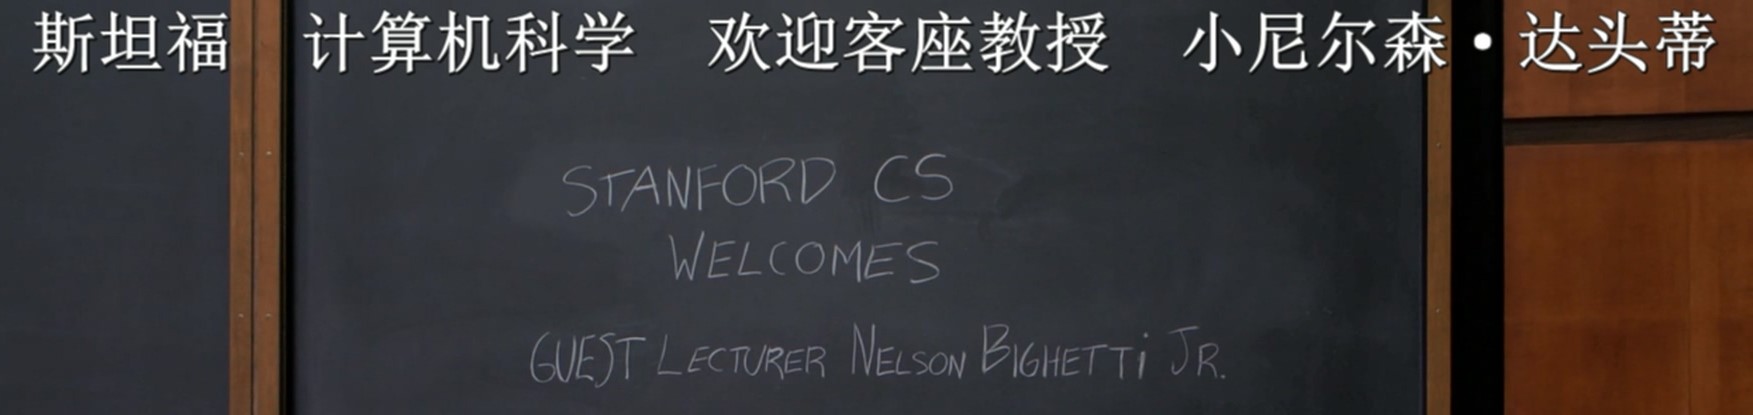 斯坦福 计算机科学 欢迎客座教授 小尼尔森·达头蒂
STANFORD CS
WELCOMES
GUEST LECTURER NELSON BIGHETTi JR.